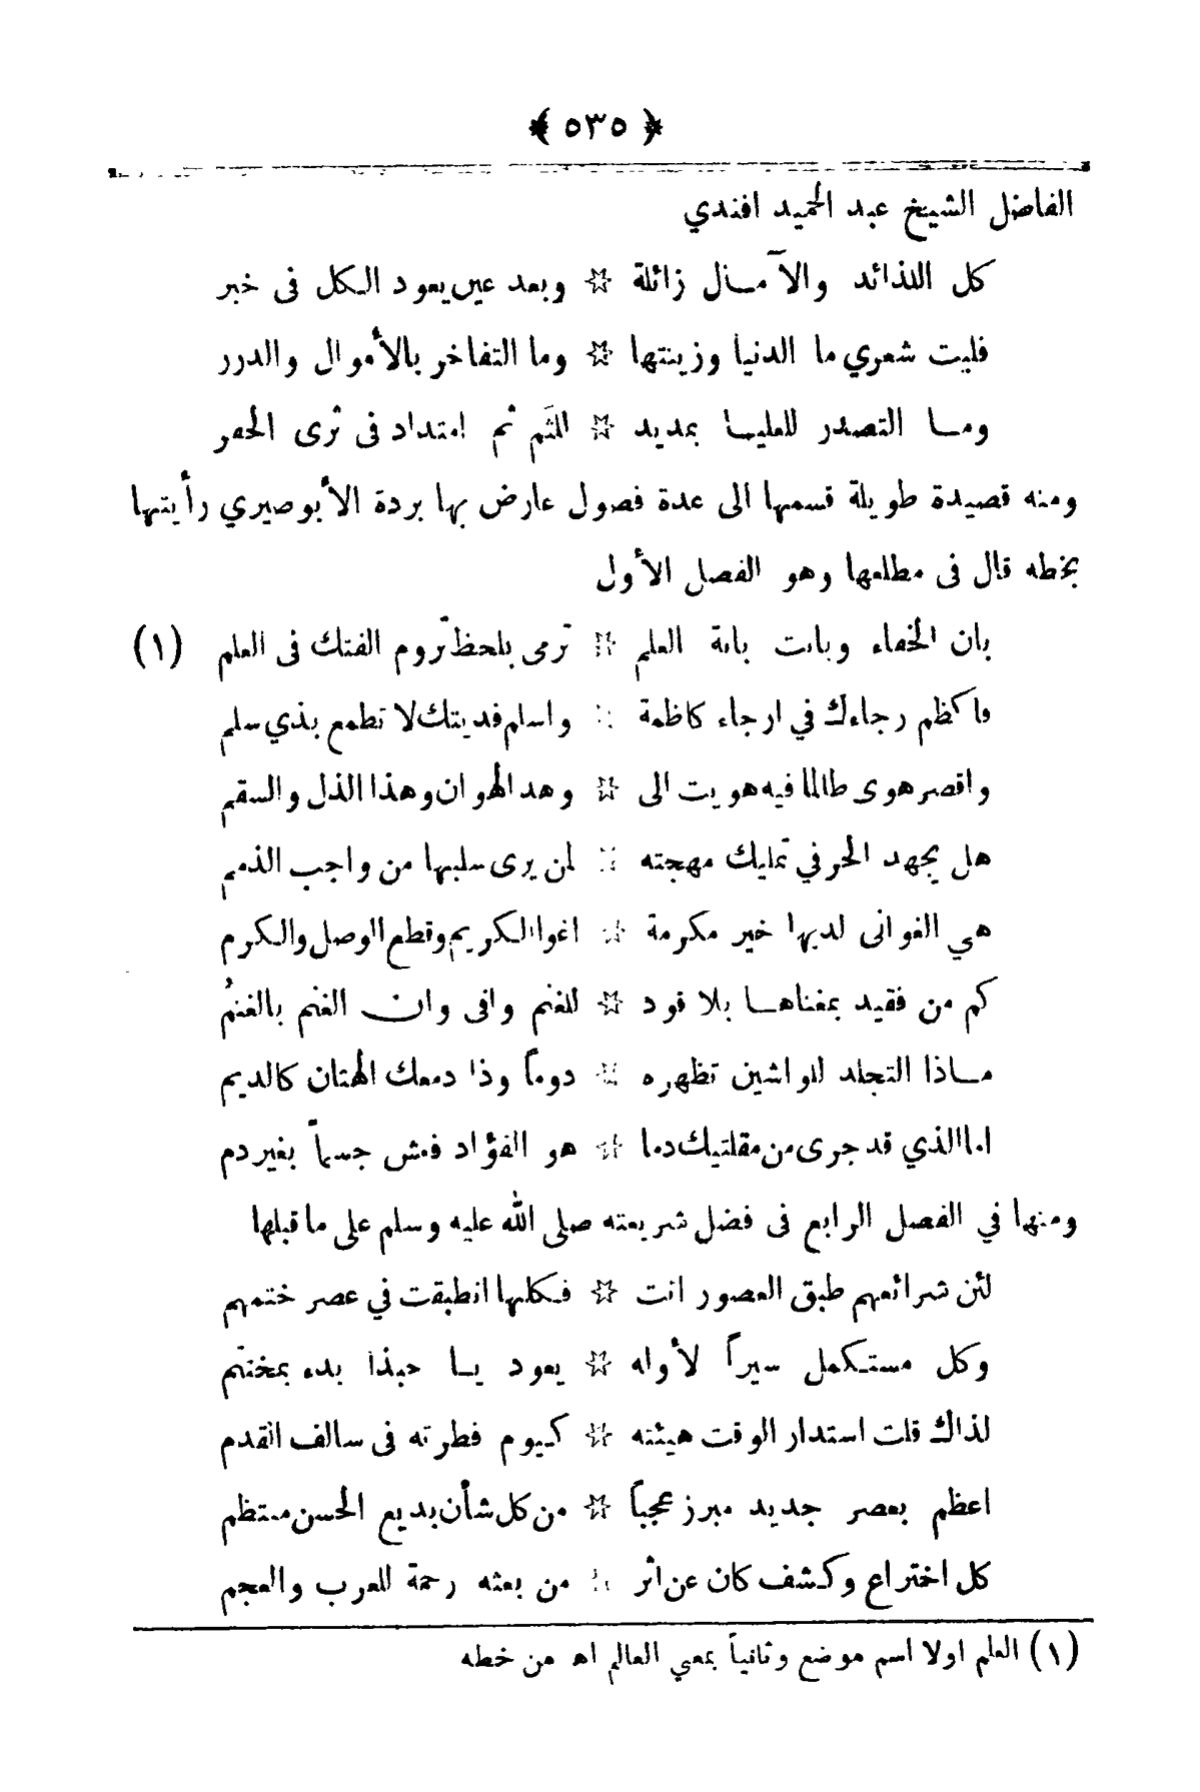 ﴿ ٥٣٥ ﴾
الفاضل الشيخ عبد الحميد افندي
كل اللذائد والآمال زائلة * وبعد عين يعود الكل فى خبر
فليت شعري ما الدنيا وزينتها * وما التفاخر بالأموال والدرر
وما التصدر للعليا بمديد * للثم ثم امتداد فى ثرى الحفر
ومنه قصيدة طويلة قسمها الى عدة فصول عارض بها بردة الأبوصيري رأيتها
بخطه قال فى مطلعها وهو الفصل الأول
بان الخفاء وبانت بانة العلم * ترمى بلحظ تروم الفتك فى العلم (١)
فاكظم رجاءك في ارجاء كاظمة * واسلم فديتك لا تطمع بذي سلم
واقصر هوى طالما فيه هويت الى * وهد الهوان وهذا الذل والسقم
هل يجهد الحر في تمليك مهجته * لمن يرى سلبها من واجب الذمم
هي الغوانى لديها خير مكرمة * اغوا الكريم وقطع الوصل والكرم
كم من فقيد بمغناها بلا قود * للغنم وافى وان الغنم بالغنم
ماذا التجلد للواشين تظهره * دوماً وذا دمعك الهتان كالديم
اما الذي قد جرى من مقلتيك دما * هو الفؤاد فعش جسماً بغير دم
ومنها في الفصل الرابع فى فضل شريعته صلى الله عليه وسلم على ما قبلها
لئن شرائعهم طبق العصور انت * فكلها انطبقت في عصر ختمهم
وكل مستكمل سيراً لأوله * يعود يا حبذا بدء بمختتم
لذاك قلت استدار الوقت هيئته * كيوم فطرته فى سالف القدم
اعظم بعصر جديد مبرز عجباً * من كل شأن بديع الحسن منتظم
كل اختراع وكشف كان عن اثر * من بعثه رحمة للعرب والعجم
(١) العلم اولا اسم موضع وثانياً بمعي العالم اه من خطه